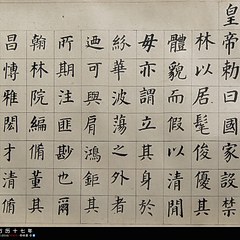 皇帝勅曰國家設禁
林以居髦俊優其
體貌而假以清閒
毋亦謂立其身於
紛華波蕩之外
迺可與肩鴻鉅其
所期注匪尠也爾
翰林院編脩董其
昌博雅閎才清脩
历十七年